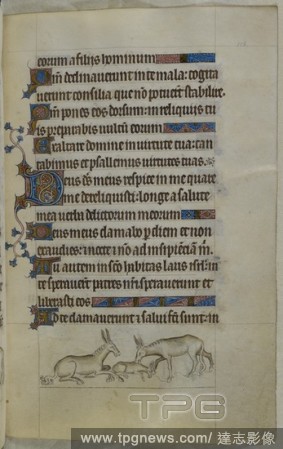 eorum a filiis hominum
Qm declinaverunt in te mala: cogita
verunt consilia que no potuert stabilire.
Qm pones eos dorsum: in reliquiis tu
is preparabis vultu eorum
Exaltare domine in virtute tua: can
tabimus et psallemus virtutes tuas.
Deus deus meus respice in me quare
me dereliquisti: longe a salute
mea verba delictorum meorum
Deus meus clamabo p diem et non
exaudies: et nocte
Tu autem in sco habitas laus isrl: in
te speraverut patres nri speraverunt et
liberasti eos
Ad te clamaverunt et salvi fci sunt: in
TPG
www.tpgnews.com/ 達志影像